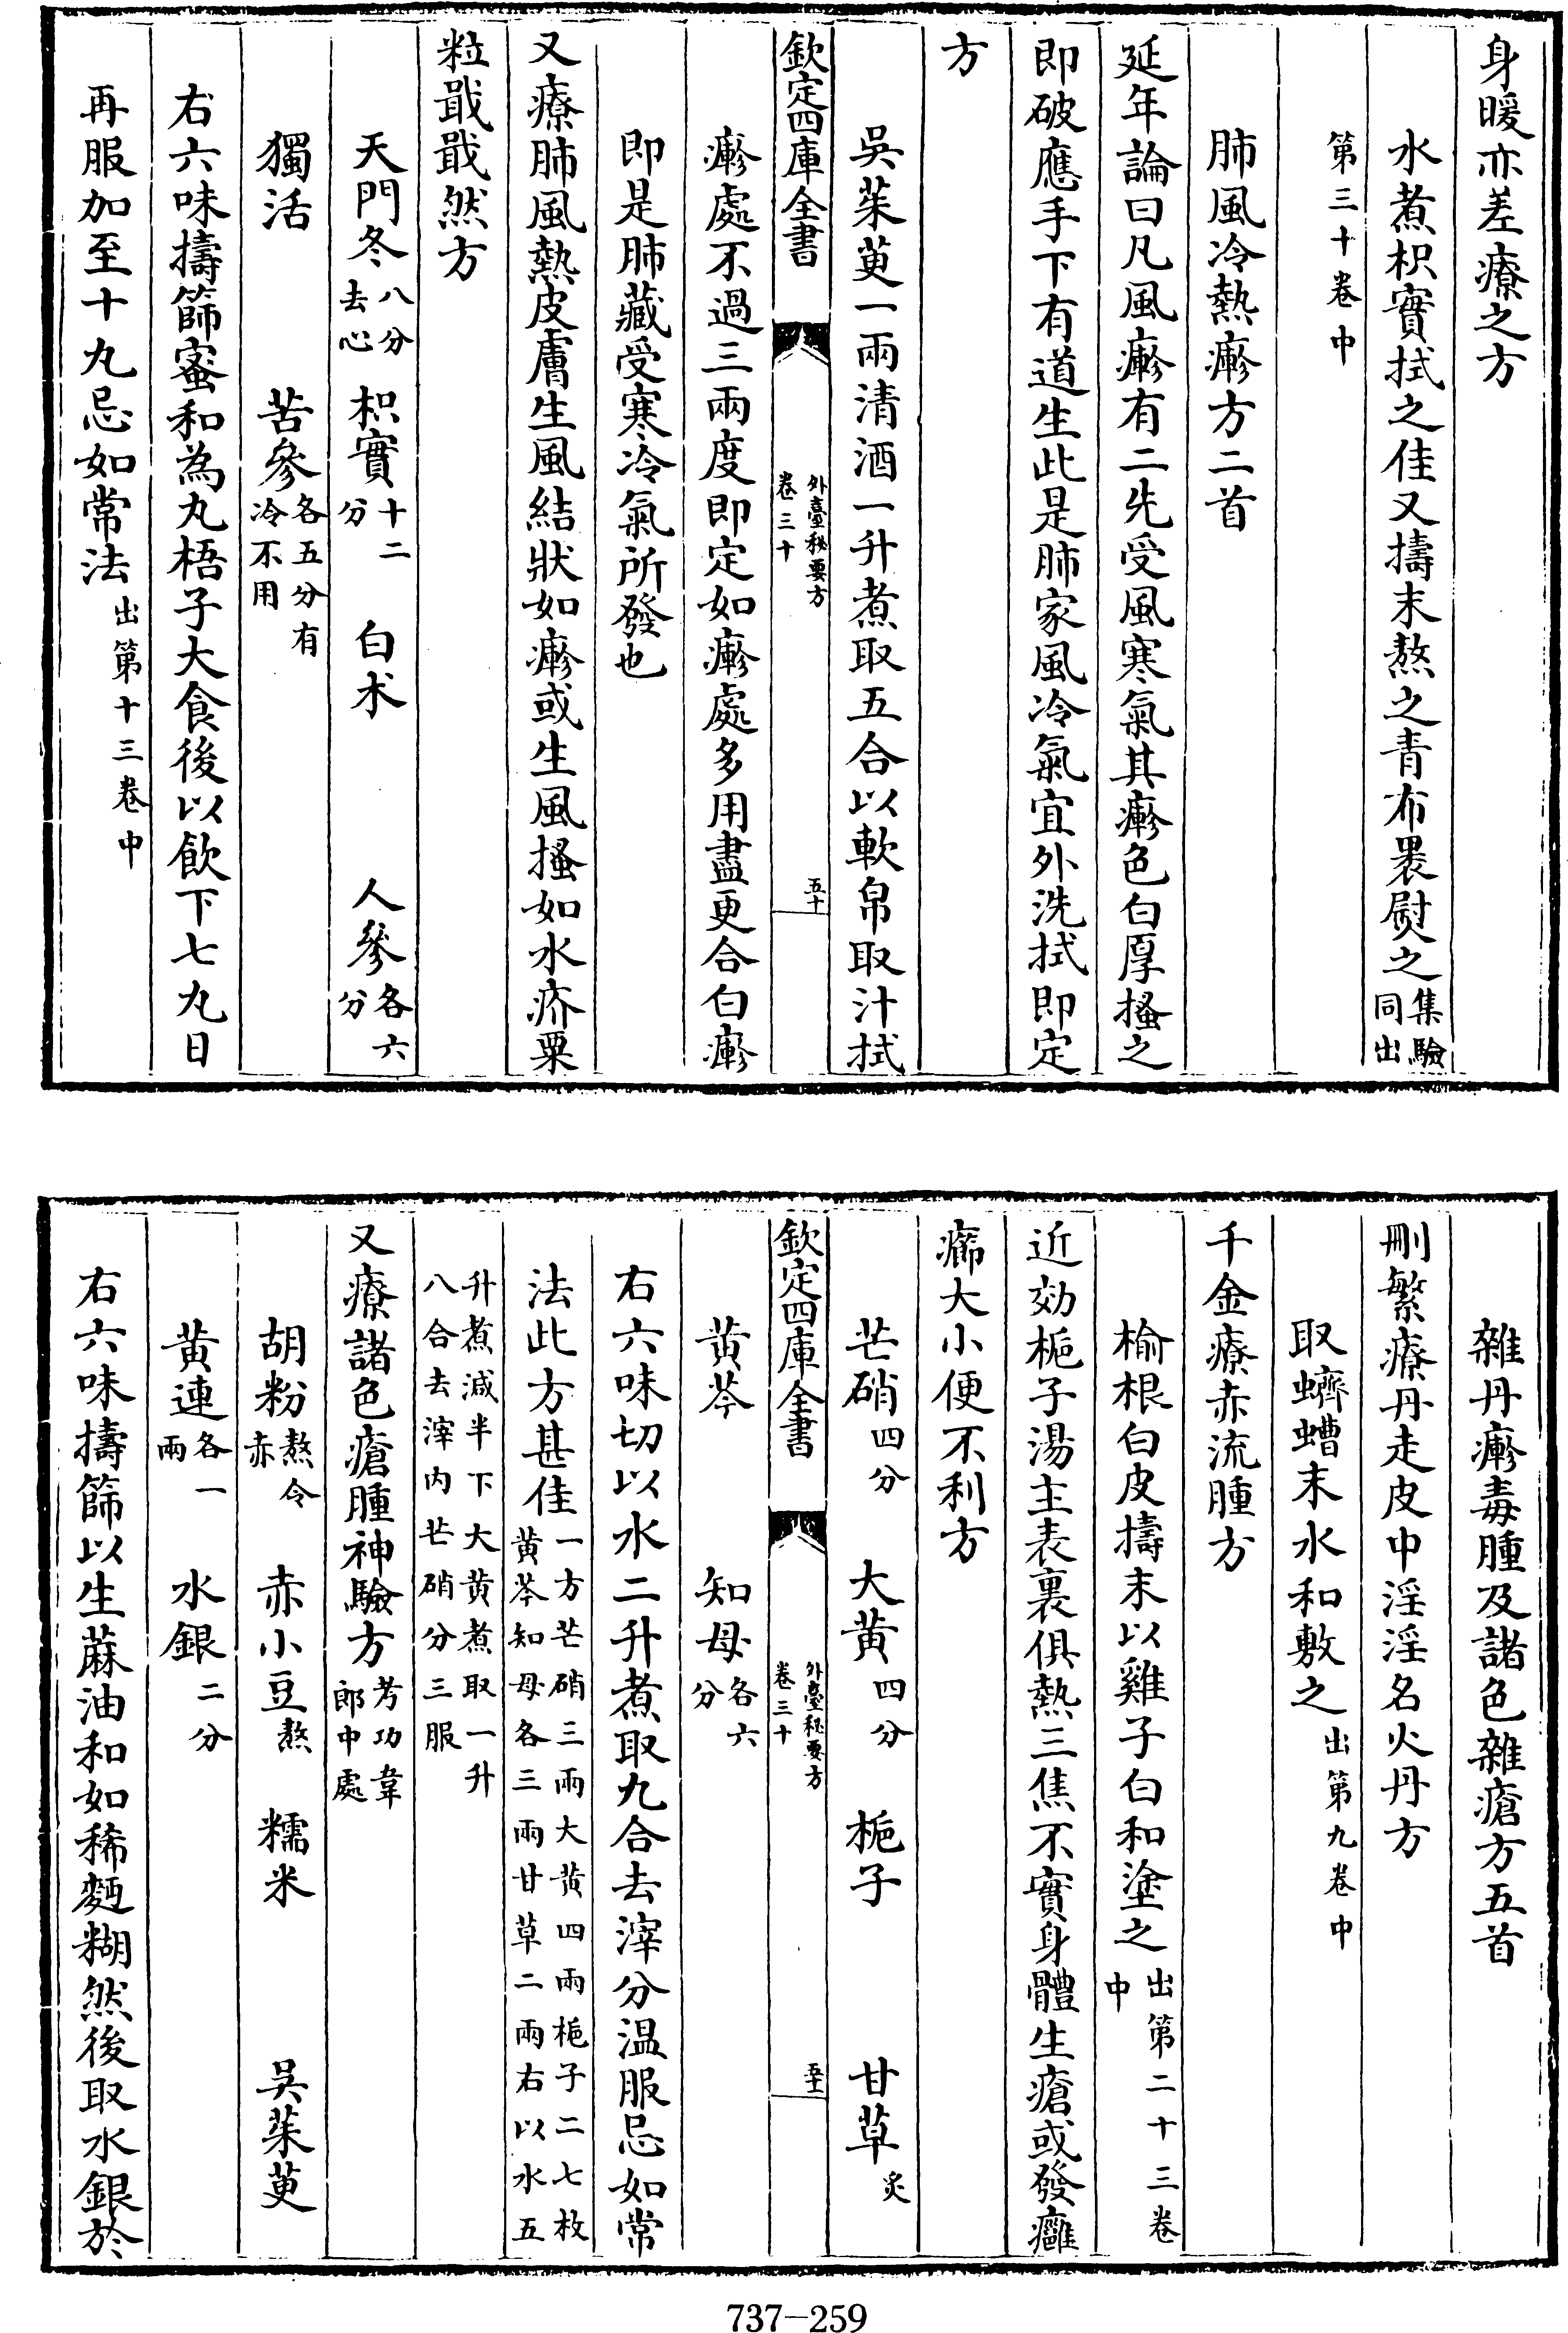 身暖亦差療之方
水煮枳實拭之佳又擣末熬之青布裹熨之集驗同出
第三十卷中
肺風冷熱㾦方二首
延年論曰凡風㾦有二先受風寒氣其㾦色白厚搔之
即破應手下有道生此是肺家風冷氣宜外洗拭即定
方
吳茱萸一兩清酒一升煮取五合以軟帛取汁拭
欽定四庫全書 外臺秘要方 卷三十 五十
㾦處不過三兩度即定如㾦處多用盡更合白㾦
即是肺藏受寒冷氣所發也
又療肺風熱皮膚生風結狀如㾦或生風搔如水疥粟
粒戢戢然方
天門冬八分去心 枳實十二分 白朮 人參各六分
獨活 苦參各五分有冷不用
右六味擣篩蜜和為丸梧子大食後以飲下七九日
再服加至十九忌如常法出第十三卷中
雜丹㾦毒腫及諸色雜瘡方五首
刪繁療丹走皮中淫淫名火丹方
取蠐螬末水和敷之出第九卷中
千金療赤流腫方
榆根白皮擣末以雞子白和塗之出第二十三卷中
近効梔子湯主表裏俱熱三焦不實身體生瘡或發癰
癤大小便不利方
芒硝四分 大黄四分 梔子 甘草炙
欽定四庫全書 外臺秘要方 卷三十 五十一
黄芩 知母各六分
右六味切以水二升煮取九合去滓分温服忌如常
法此方甚佳一方芒硝三兩大黄四兩梔子二七枚黄芩知母各三兩甘草二兩右以水五
升煮減半下大黄煮取一升八合去滓内芒硝分三服
又療諸色瘡腫神驗方考功韋郎中處
胡粉熬令赤 赤小豆熬 糯米 吳茱萸
黄連各一兩 水銀二分
右六味擣篩以生蔴油和如稀麪糊然後取水銀於
737-259